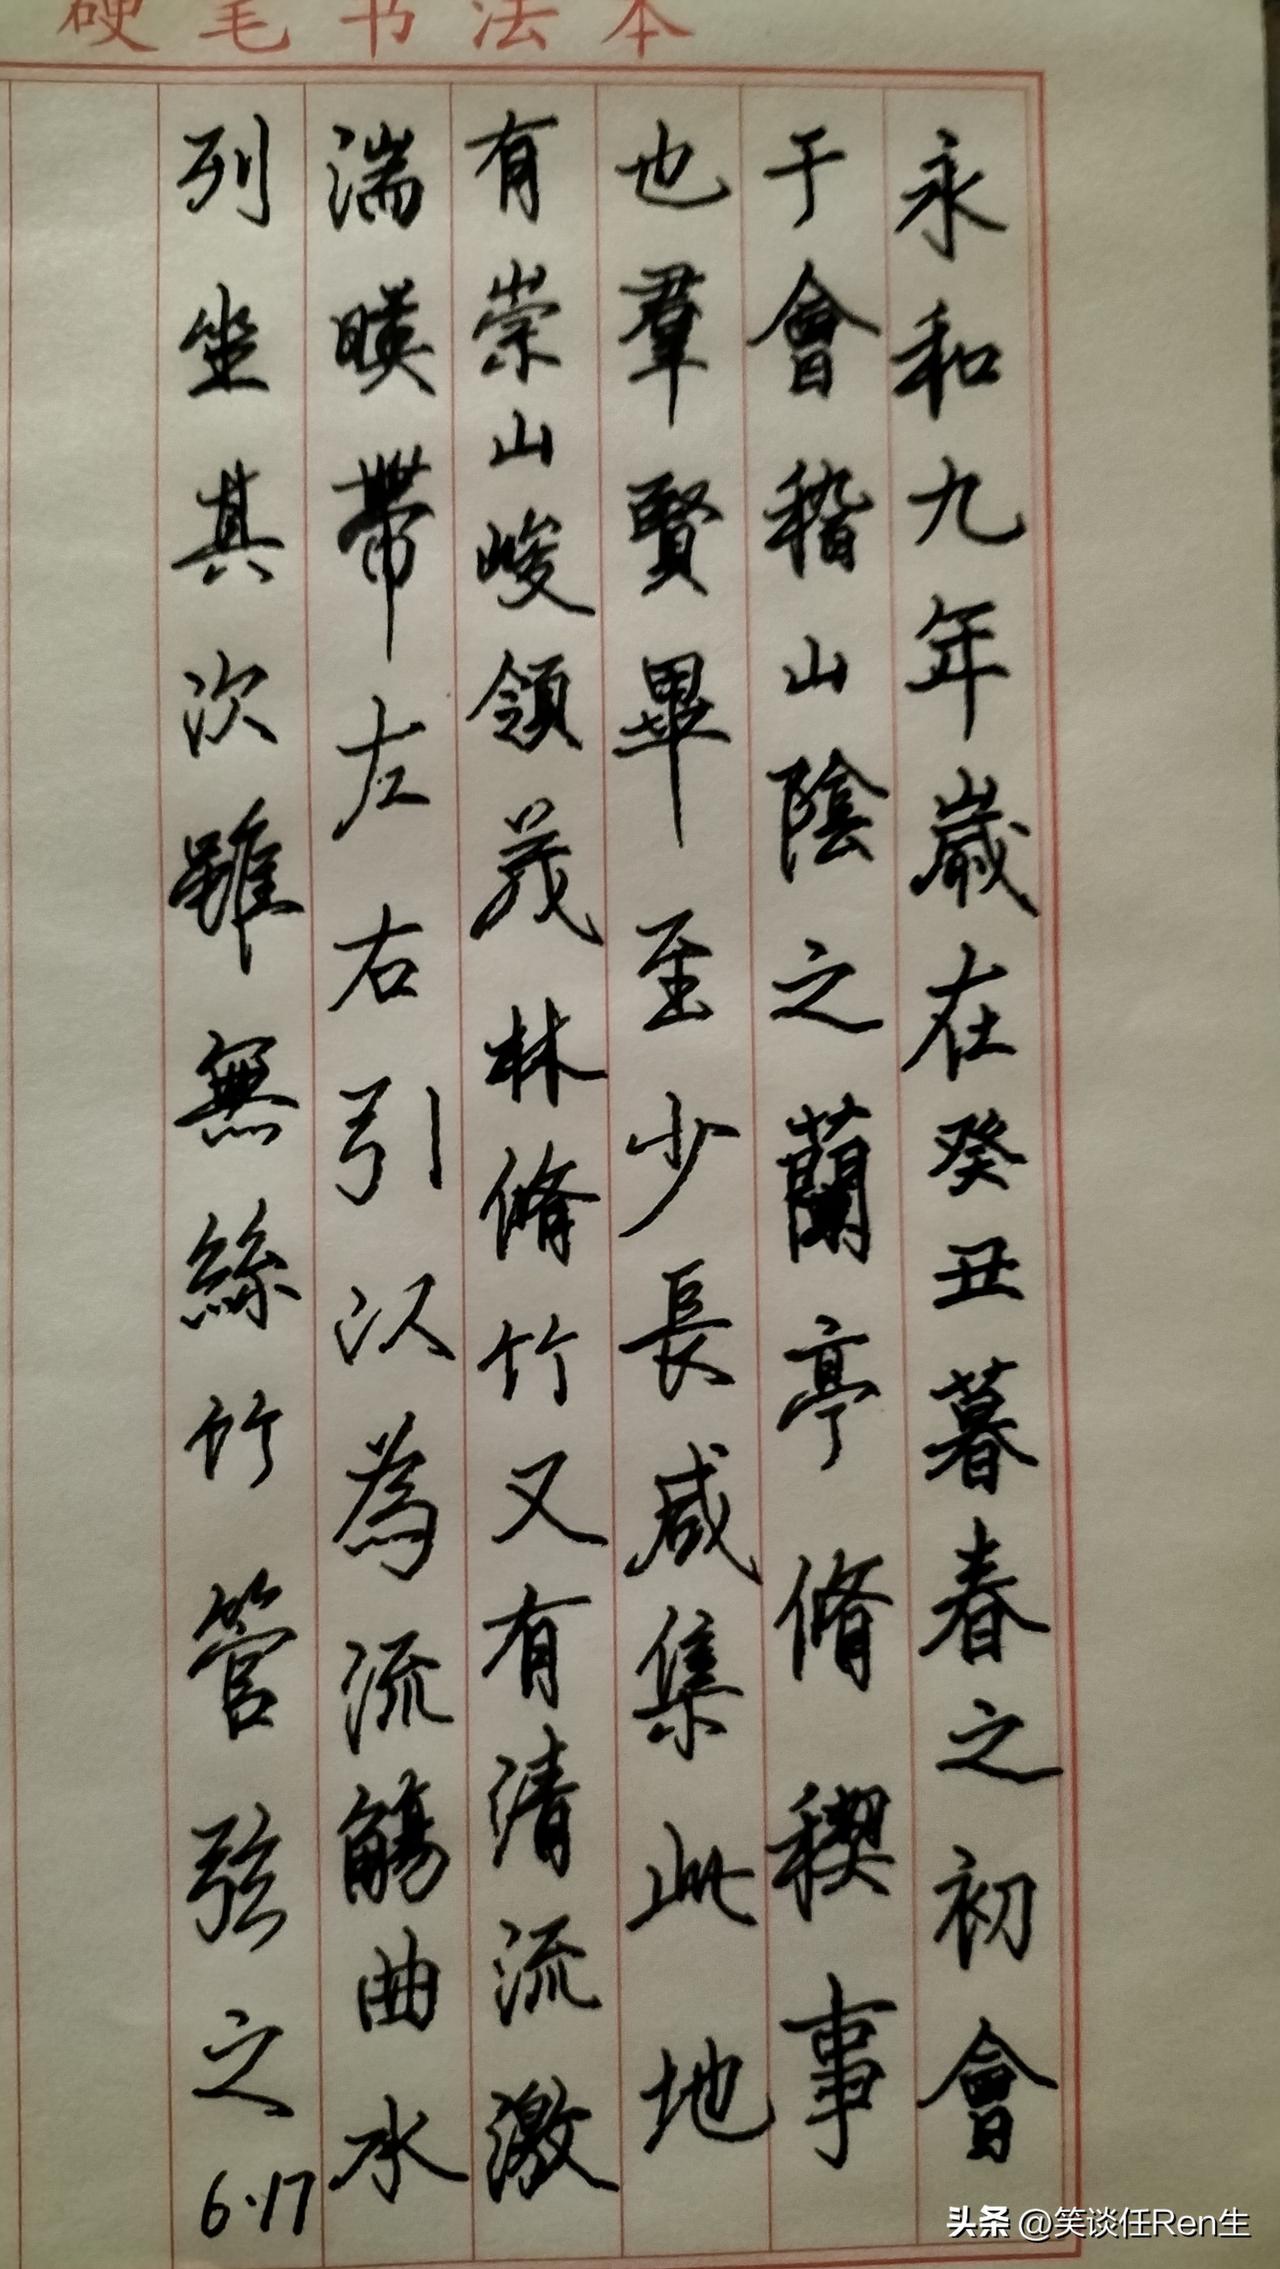 硬毛书法本
永和九年歲在癸丑暮春之初會
于會稽山陰之蘭亭脩稧事
也羣賢畢至少長咸集此地
有崇山峻領茂林脩竹又有清流激
湍暎帶左右引以為流觴曲水
列坐其次雖無絲竹管弦之
6.17
头条 @笑谈任Ren生